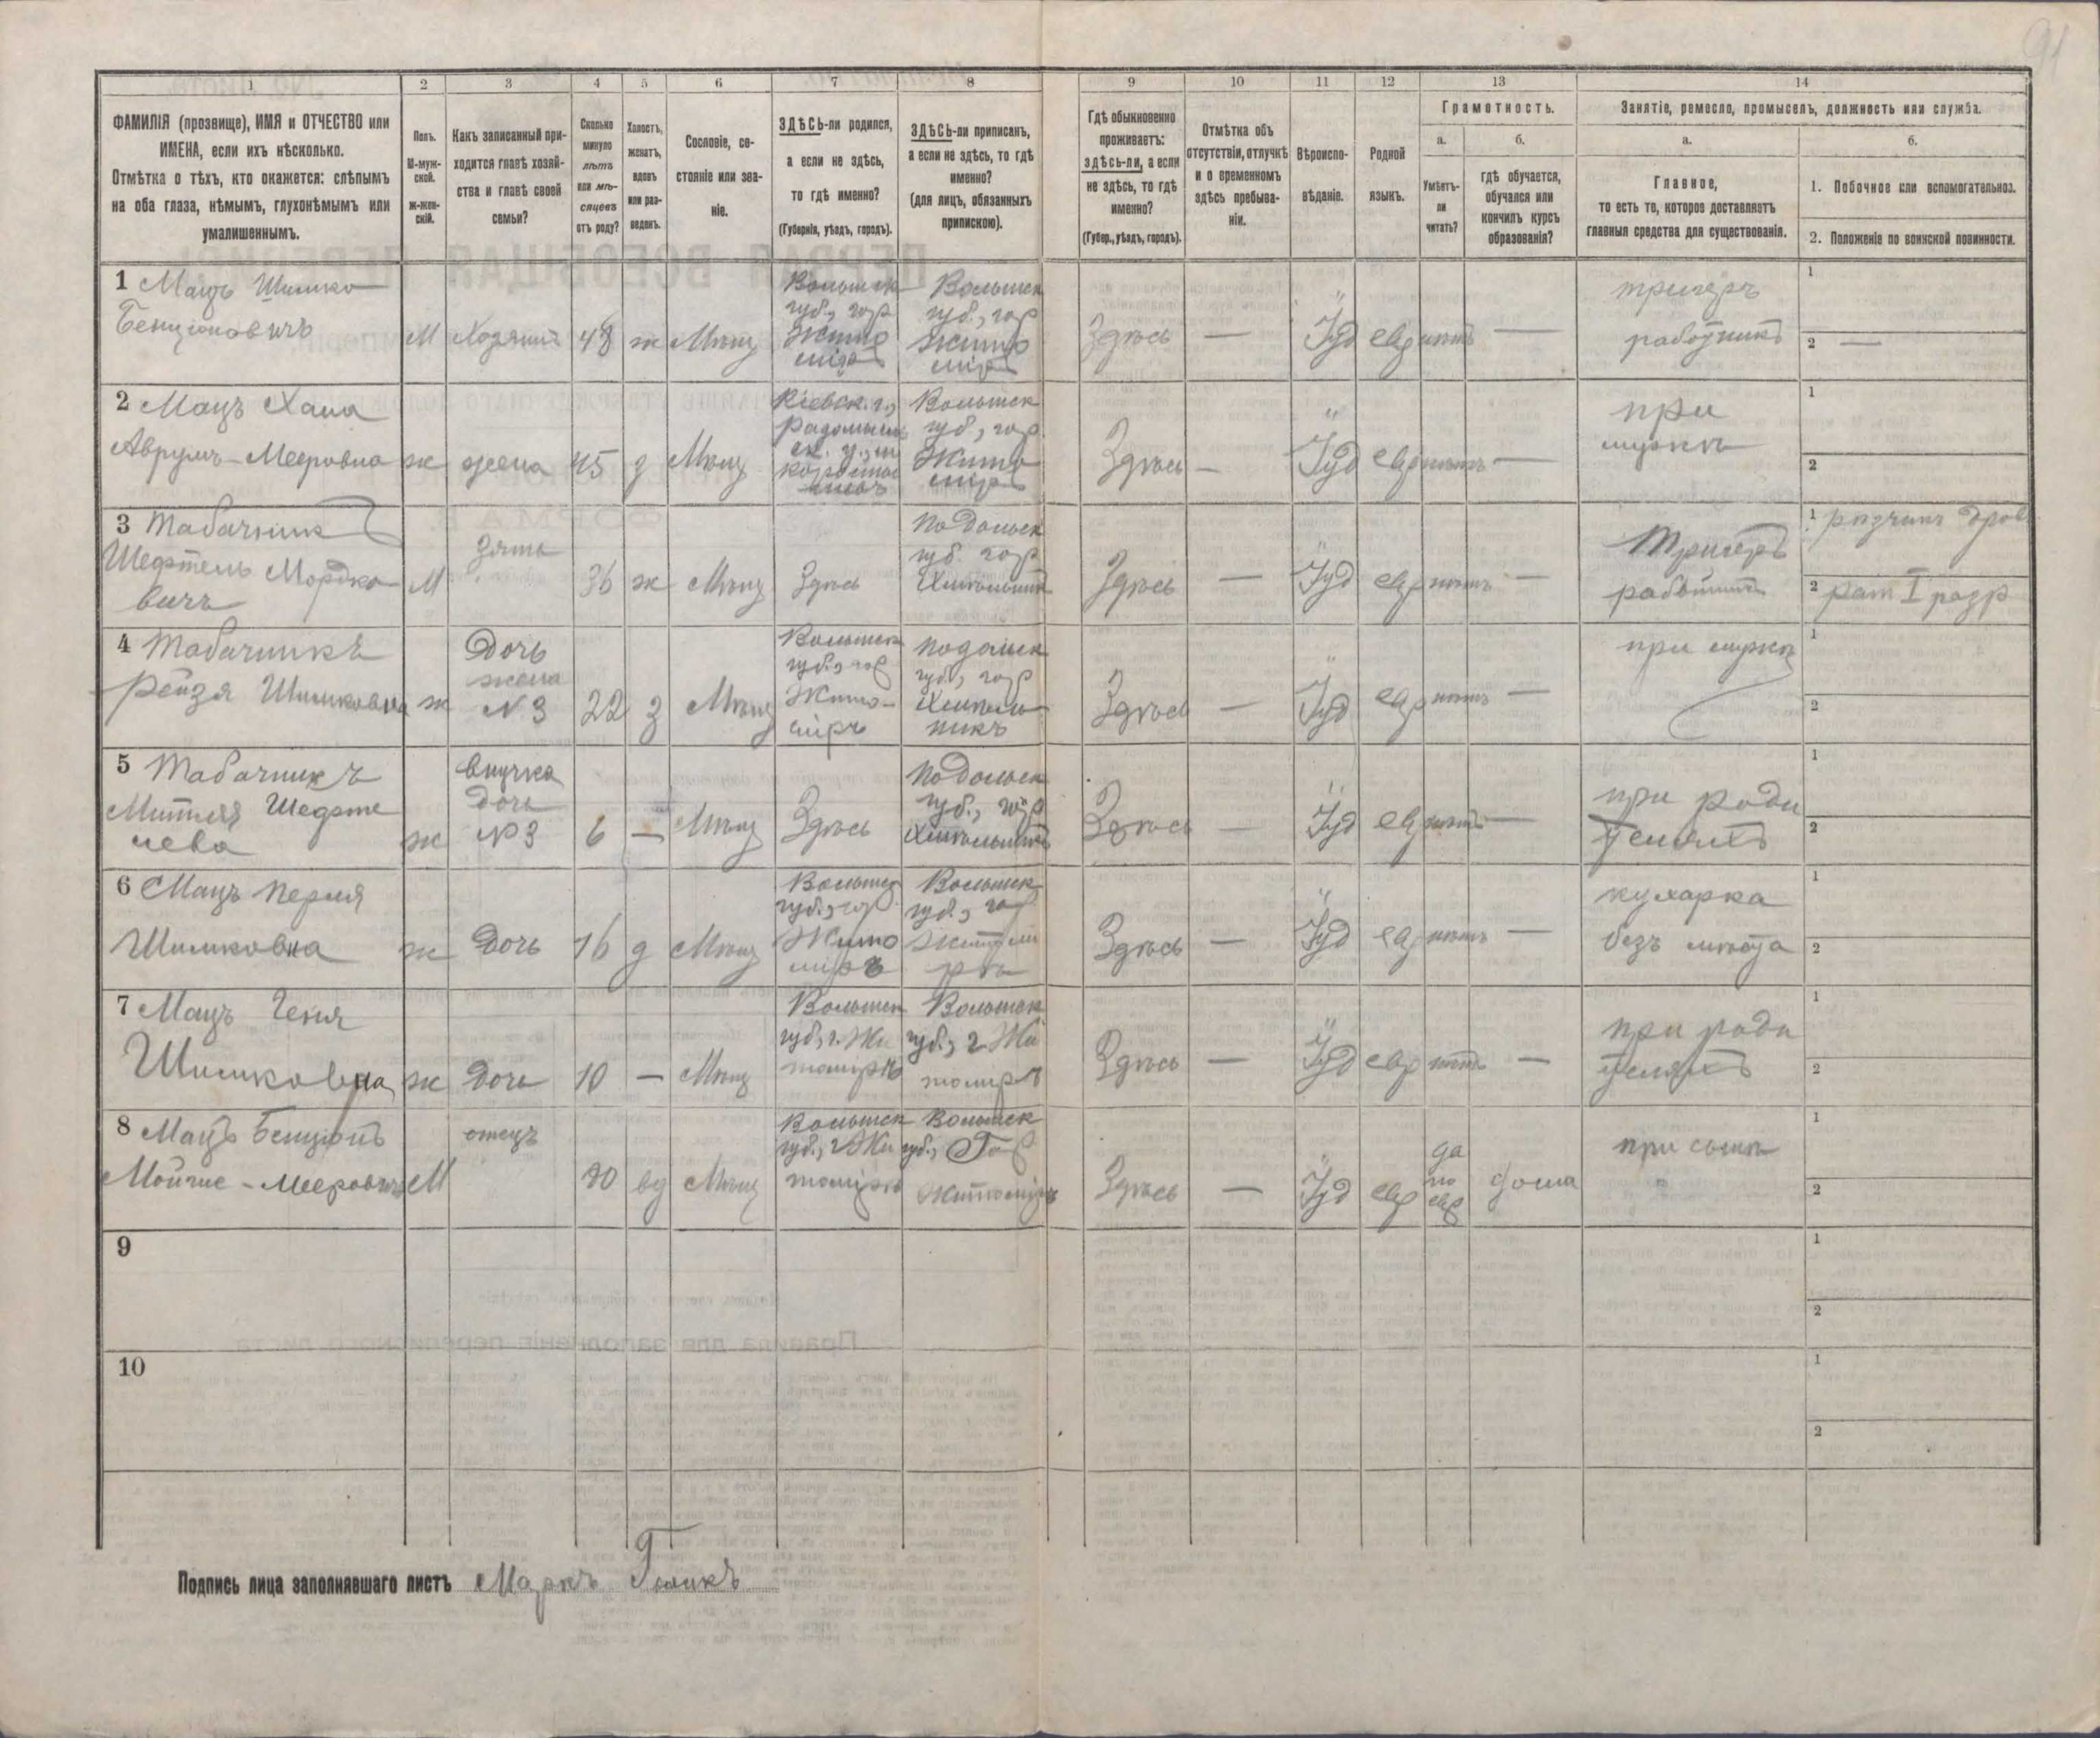 91
1 2 3 4 5 6 7 8 9 10 11 12 13 14
ФАМИЛІЯ (прозвище), ИМЯ и ОТЧЕСТВО или
ИМЕНА, если ихъ нѣсколько.
Отмѣтка о тѣхъ, кто окажется: слѣпымъ
на оба глаза, нѣмымъ, глухонѣмымъ или
умалишеннымъ.
Полъ.
М-муж-
ской.
ж-жен-
скій.
Какъ записанный при-
ходится главѣ хозяй-
ства и главѣ своей
семьи?
Сколько
минуло
лѣтъ
или мѣ-
сяцевъ
отъ роду?
Холостъ,
женатъ,
вдовъ
или раз-
веденъ.
Сословіе, со-
стояніе или зва-
ніе.
ЗДѢСЬ-ли родился,
а если не здѣсь,
то гдѣ именно?
(Губернія, уѣздъ, городъ).
ЗДѢСЬ-ли приписанъ,
а если не здѣсь, то гдѣ
именно?
(для лицъ, обязанныхъ
припискою).
Гдѣ обыкновенно
проживаетъ:
здѣсь-ли, а если
не здѣсь, то гдѣ
именно?
(Губер., уѣздъ, городъ).
Отмѣтка объ
отсутствіи, отлучкѣ
и о временномъ
здѣсь пребыва-
ніи.
Вѣроиспо-
вѣданіе.
Родной
языкъ.
Грамотность.
а.
Умѣетъ-
ли
читать?
б.
гдѣ обучается,
обучался или
кончилъ курсъ
образованія?
Занятіе, ремесло, промыселъ, должность или служба.
а.
Главное,
то есть то, которое доставляетъ
главныя средства для существованія.
б.
1. Побочное или вспомогательное.
2. Положеніе по воинской повинности.
1 Мацъ Шимко
Бенціоновичъ
М Хозяинъ 48 ж Мѣщ
Волынск
губ., гор
Жито
міръ
Волынск
губ., гор
Жито
міръ
Здѣсь — Іуд евр нѣтъ —
работникъ
1
2 —
2 Мацъ Хана
Аврумъ-Мееровна
ж жена 45 з Мѣщ
Кіевск. г.,
Волынск
губ., гор
Жито
міръ
Здѣсь — Іуд евр нѣтъ —
при
мужѣ
1
2
3 Табачник
Шефтель Мордко-
вичъ
М
зять
36 ж Мѣщ Здѣсь
Подольск
губ. гор
Хмѣльникъ
Здѣсь — Іуд евр нѣтъ —
работникъ
1
2 рат I разр
4 Табачникъ
Рейзя Шимковна
ж
Дочь
жена
№ 3
22 з Мѣщ
Волынск
губ., гор
Жито-
міръ
Подольск
губ., гор
Хмѣль
никъ
Здѣсь — Іуд евр нѣтъ —
при мужѣ
1
2
5 Табачникъ
Шефте
лева
ж
внучка
дочь
№ 3
6 — Мѣщ Здѣсь
Подольск
губ., гор
Хмѣльникъ
Здѣсь — Іуд евр нѣтъ —
при роди
теляхъ
1
2
6 Мацъ Перля
Шимковна
ж Дочь 16 д Мѣщ
Волынск
губ., гор
Жито
міръ
Волынск
губ., гор
Житомі
ръ
Здѣсь — Іуд евр нѣтъ —
кухарка
безъ мѣста
1
2
7 Мацъ Геня
Шимковна
ж Дочь 10 — Мѣщ
Волынск
губ., г. Жи
томіръ
Волынск
губ., г. Жи
томіръ
Здѣсь — Іуд евр нѣтъ —
при роди
теляхъ
1
2
8 Мацъ Бенціонъ
Мойше-Мееровичъ
М
отецъ
вд Мѣщ
Волынск
губ., г Жи
томіръ
Волынск
губ., Гор
Житоміръ
Здѣсь — Іуд евр
да
по
евр
дома
при сынѣ
1
2
9
1
2
10
1
2
Подпись лица заполнявшаго листъ Маркъ